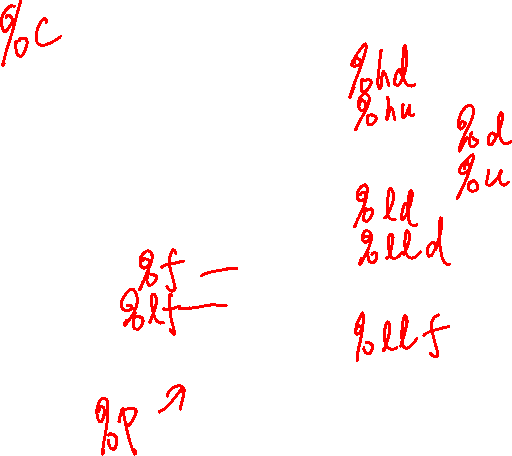 %c
%hd
%hu
%d
%u
%ld
%lld
%f
%lf
%llf
%p